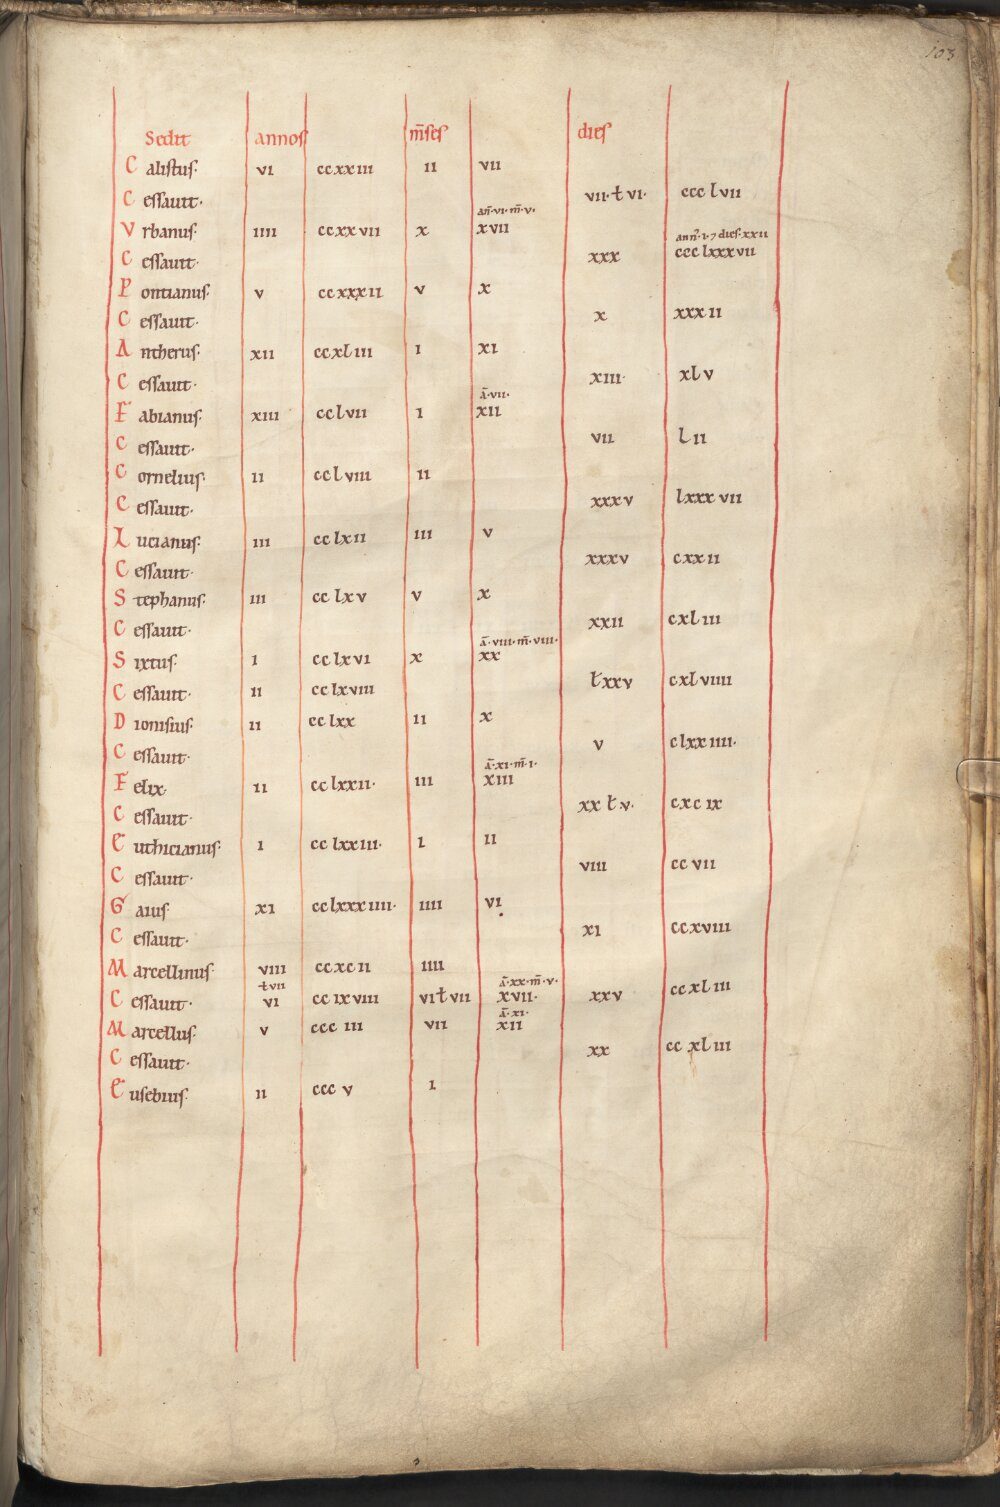 103
Sedit annos m̄ses dies
Calistus· vi ccxxiii ii vii
Cessauit· vii·ƚ vi· ccc lvii
an̄·vi·m̄·v·
Vrbanus· iiii ccxxvii x xvii
ann̄·i·⁊ dies·xxii
Cessauit· xxx ccclxxxvii
Pontianus· v ccxxxii v x
Cessauit· x xxxii
Antherus· xii ccxliii i xi
Cessauit· xiii· xlv
ā·vii·
Fabianus· xiii cclvii i xii
Cessauit· vii lii
Cornelius· ii cclviii ii
Cessauit· xxxv lxxxvii
Lucianus· iii cclxii iii v
Cessauit· xxxv cxxii
Stephanus· iii cclxv v x
Cessauit· xxii cxliii
ā·viii·m̄·viii·
Sixtus· i cclxvi x xx
Cessauit· ii cclxviii ƚxxv cxlviiii
Dionisius· ii cclxx ii x
Cessauit· v clxxiiii·
ā·xi·m̄·i·
Felix· ii cclxxii· iii xiii
Cessauit· xx ƚ v· cxcix
Euthicianus· i cclxxiii· i ii
Cessauit· viii ccvii
Gaius· xi cclxxxiiii· iiii vi
Cessauit· xi ccxviii
Marcellinus· viii ccxcii iiii
ƚ vii ā·xx·m̄·v·
Cessauit· vi ccixviii vi ƚ vii xvii· xxv ccxliii
ā·xi·
Marcellus· v ccc iii vii xii
Cessauit· xx cc xliii
Eusebius· ii ccc v i